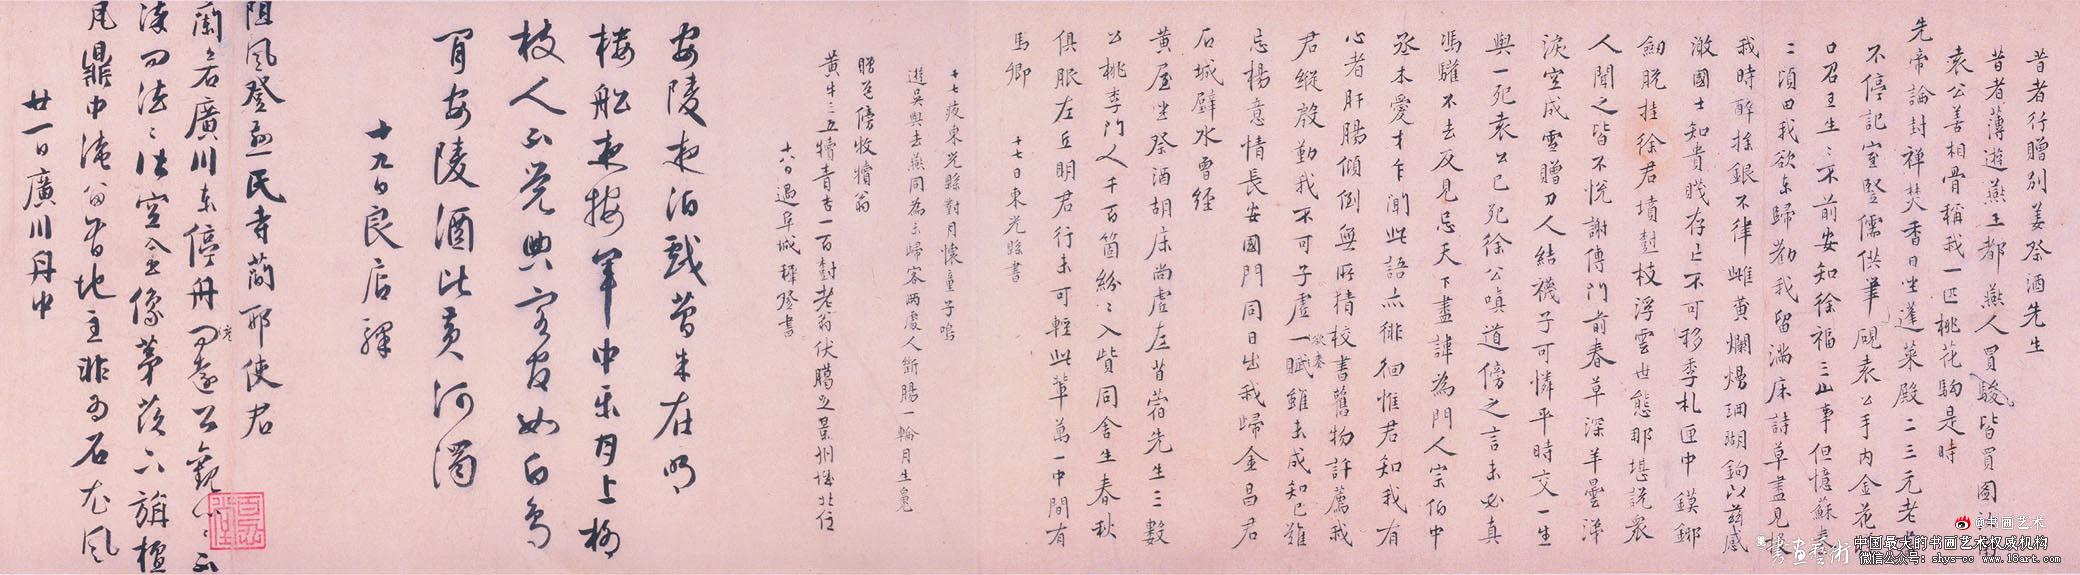 昔者行贈別姜祭酒先生
昔者薄遊燕王都燕人買駿皆買圖
袁公善相骨稱我一匹桃花駒是時
先帝論封禪焚香日坐蓬萊殿二三元老
不停記室豎儒供筆硯袁公手內金花
口召王生〻不前安知徐福三山事但憶蘇秦
二頃田我欲東歸勸我留滿床詩草盡見
我時醉捨銀不律雌黃爛熳珊瑚鉤以茲感
激國士知貴賤存亡不可移季札匣中鏌鋣
劍脫挂徐君墳樹枝浮雲世態那堪說眾
人聞之皆不悅謝傅門前春草深羊曇淚
淚空成雪贈刀人結襪子可憐平時交一生
與一死袁公已死徐公嗔道傍之言未必真
馮驩不去反見忌天下盡諱為門人宗伯中
丞本愛才乍聞此語亦徘徊惟君知我有
心者肝腸傾倒無所猜校書舊物許薦我
君縱殷勤我不可子虛一賦雖未成知己雖
欲奏
忘楊意情長安國門同日出我歸金昌君
石城壁水曾經
黃屋坐祭酒胡床尚虛左苜蓿先生三數
公桃李門人千百箇紛〻入貲同舍生春秋
俱服左丘明君行未可輕此輩萬一中間有
馬卿
十七日東光縣書
十七夜東光縣對月懷童子鳴
遊吳與去燕同為未歸客兩處人斷腸一輪月生魄
贈道傍牧犢翁
黃牛三五犢青杏一百樹老翁伏臘足景州城北住
十八日過阜城驛登書
安陵夜泊戲簡朱在明
樓船夜按筆中樂月上楊
枝人不覺與客宵如白烏
肙安陵酒比黃河濁
十九日良店驛
阻風登恩民寺簡邢使君
蘭若廣川東停舟
〻法空金像茅茨六旃檀
見鼎中淹留昔地主非為石尤風
廿一日廣川舟中
@书画艺术
書畫藝術
中国最大的书画艺术权威机构
微信公众号：shys-cc www.18art.com